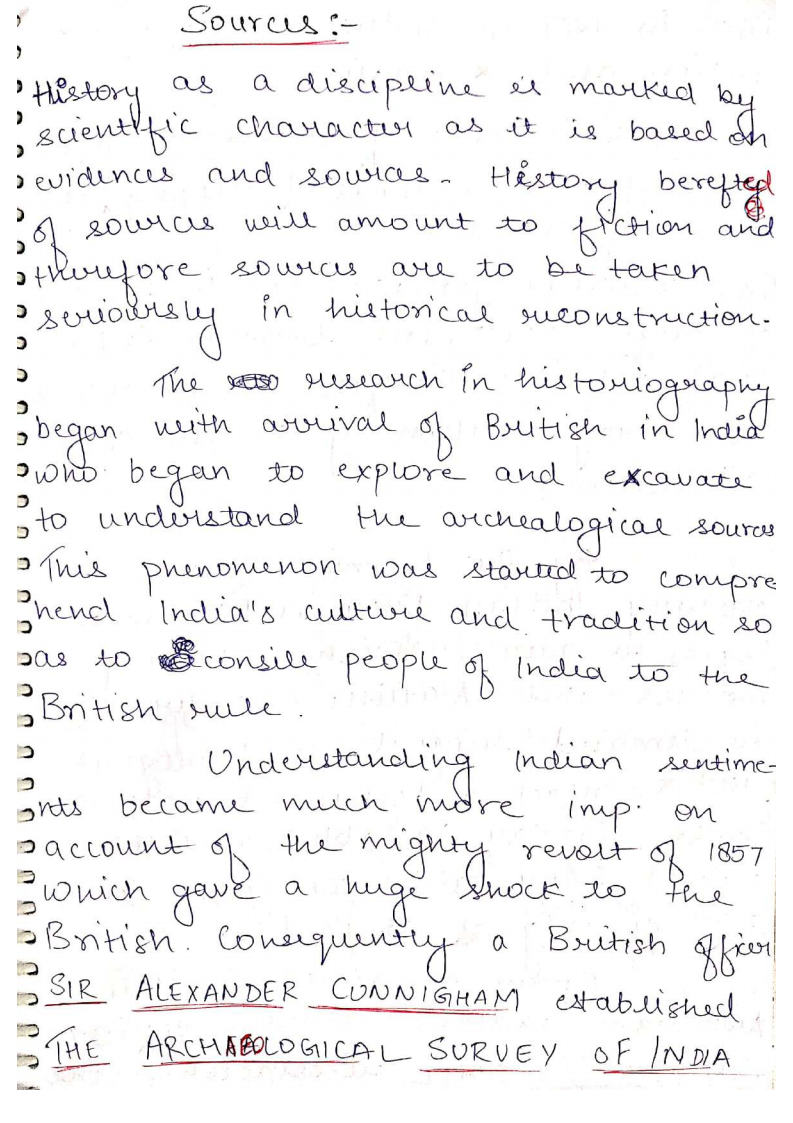 Sources :-
History as a discipline is marked by
scientific character as it is based on
evidences and sources. History berefted
of sources will amount to fiction and
therefore sources are to be taken
seriouirsly in historical reconstruction.
The research in historiography
began with arrival of British in India
who began to explore and excavate
to understand the archealogical sources
This phenomenon was started to compre
hend India's culture and tradition so
as to consile people of India to the
British rule.
Understanding Indian sentime-
nts became much more imp. on
account of the mighty revolt of 1857
which gave a huge shock to the
British. Consequently a British officer
SIR ALEXANDER CUNNIGHAM established
THE ARCHAEOLOGICAL SURVEY OF INDIA